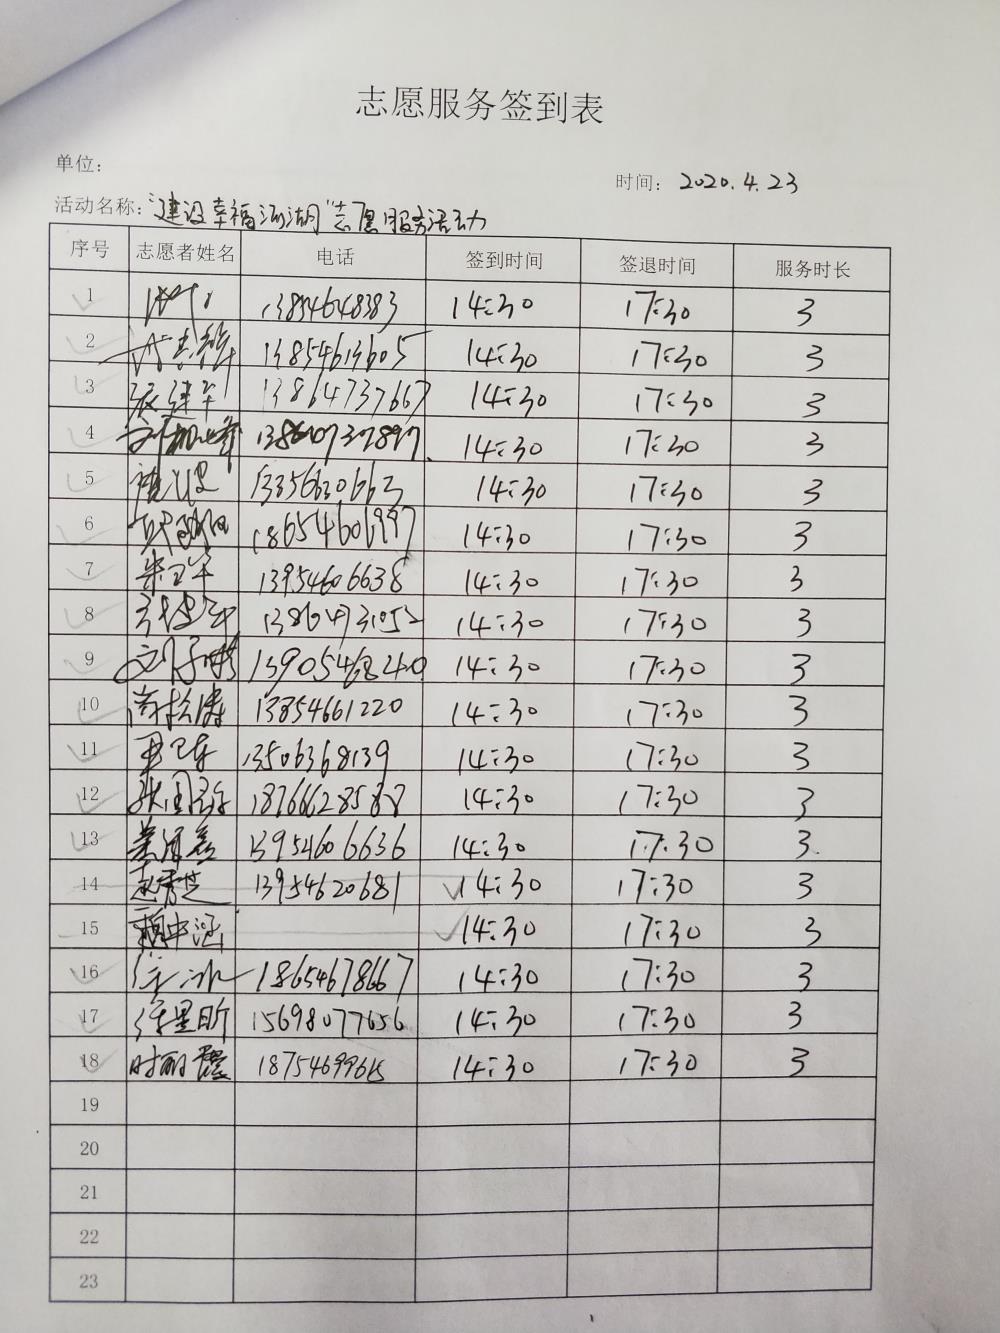 志愿服务签到表
单位：
时间： 2020.4.23
活动名称：“建设幸福河湖”志愿服务活动
序号 志愿者姓名 电话 签到时间 签退时间 服务时长
1 13854648383 14:30 17:30 3
2 13854613605 14:30 17:30 3
3 张建军 13864737667 14:30 17:30 3
4 14:30 17:30 3
5 13356630663 14:30 17:30 3
6 18654606997 14:30 17:30 3
7 朱卫军 13954606638 14:30 17:30 3
8 13864731052 14:30 17:30 3
9 14:30 17:30 3
10 尚松涛 13854661220 14:30 17:30 3
11 13506368139 14:30 17:30 3
12 18766628588 14:30 17:30 3
13 13954606636 14:30 17:30 3
14 赵秀芝 13954620681 14:30 17:30 3
15 14:30 17:30 3
16 18654678667 14:30 17:30 3
17 徐星昕 15698077656 14:30 17:30 3
18 14:30 17:30 3
19
20
21
22
23